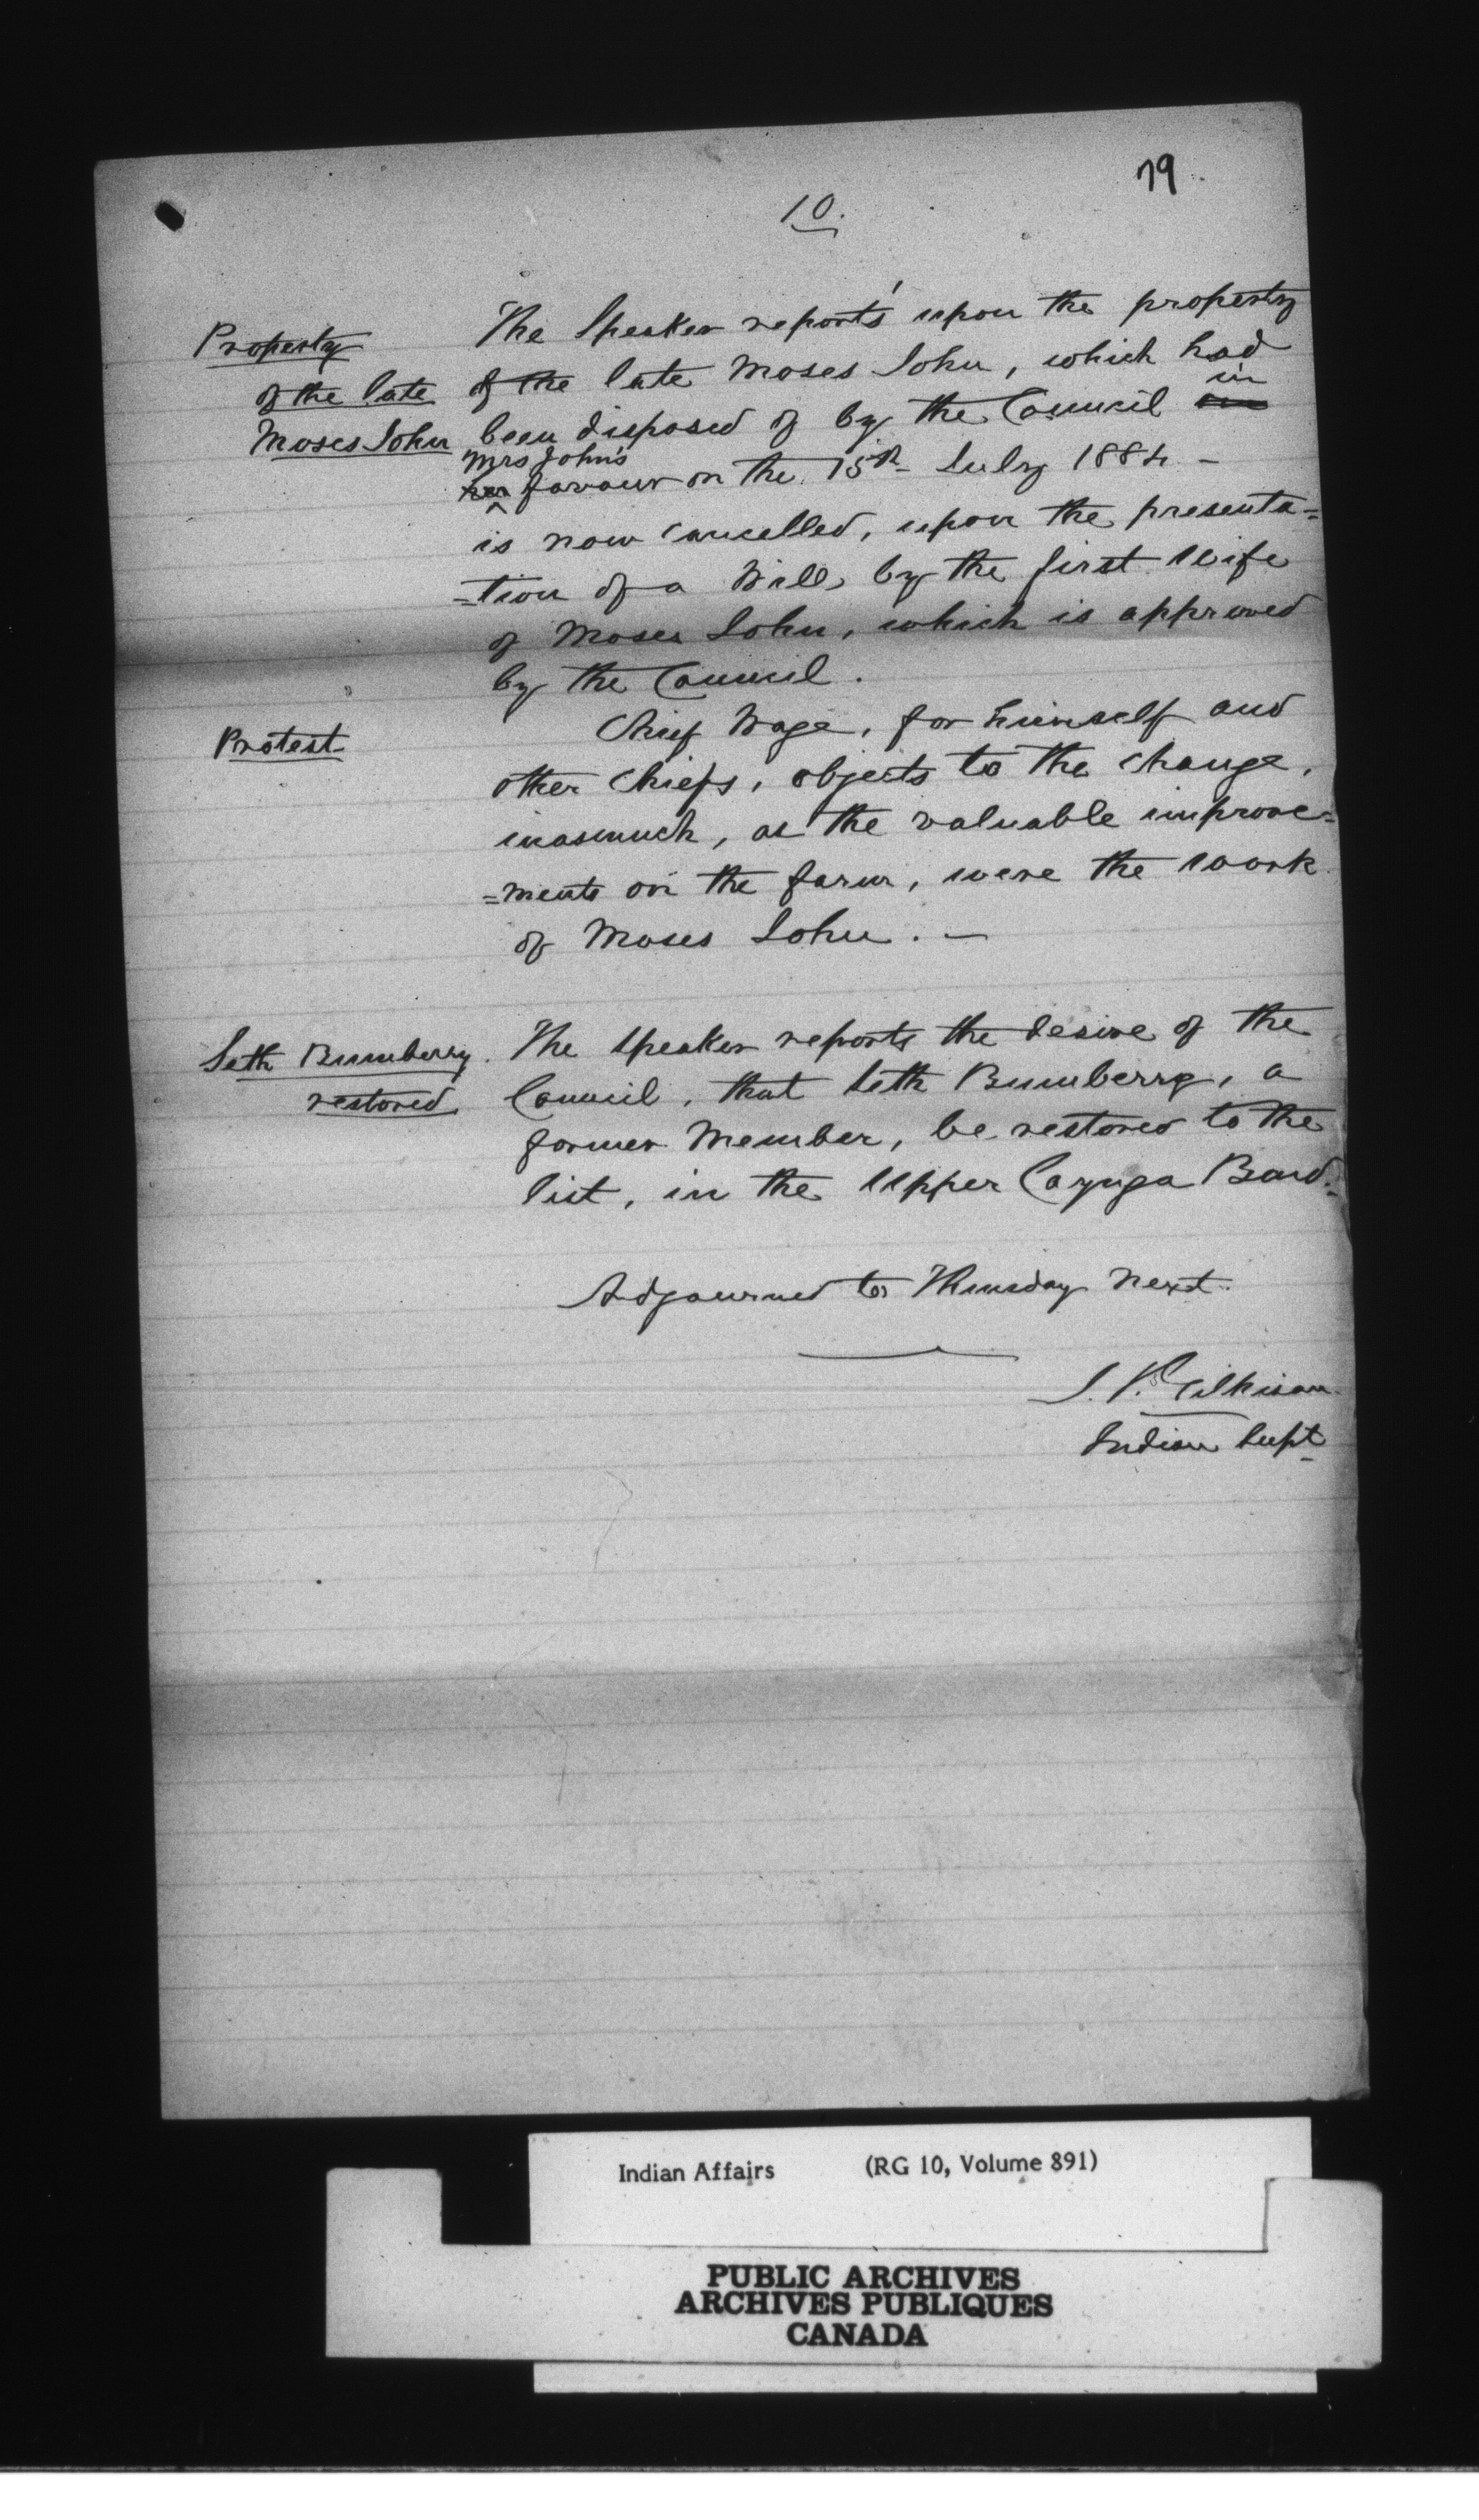 79
10.
Property
of the late
Moses John
The Speaker reports upon the property
of the late Moses John, which had
been disposed of by the Council in
Mrs John's
favour on the 15th July 1884 –
is now cancelled, upon the presenta=
=tion of a Will, by the first Wife
of Moses John, which is approved
by the Council.
Protest
Chief Wage, for himself and
other Chiefs, objects to the change,
inasmuch, as the valuable improve=
=ments on the farm, were the work
of Moses John. –
Seth Bumberry
restored
The Speaker reports the desire of the
Council, that Seth Bumberry, a
former Member, be restored to the
list, in the Upper Cayuga Band.
Adjourned to Thursday next.
J. T. Gilkison
Indian Supt
Indian Affairs (RG 10, Volume 891)
PUBLIC ARCHIVES
ARCHIVES PUBLIQUES
CANADA